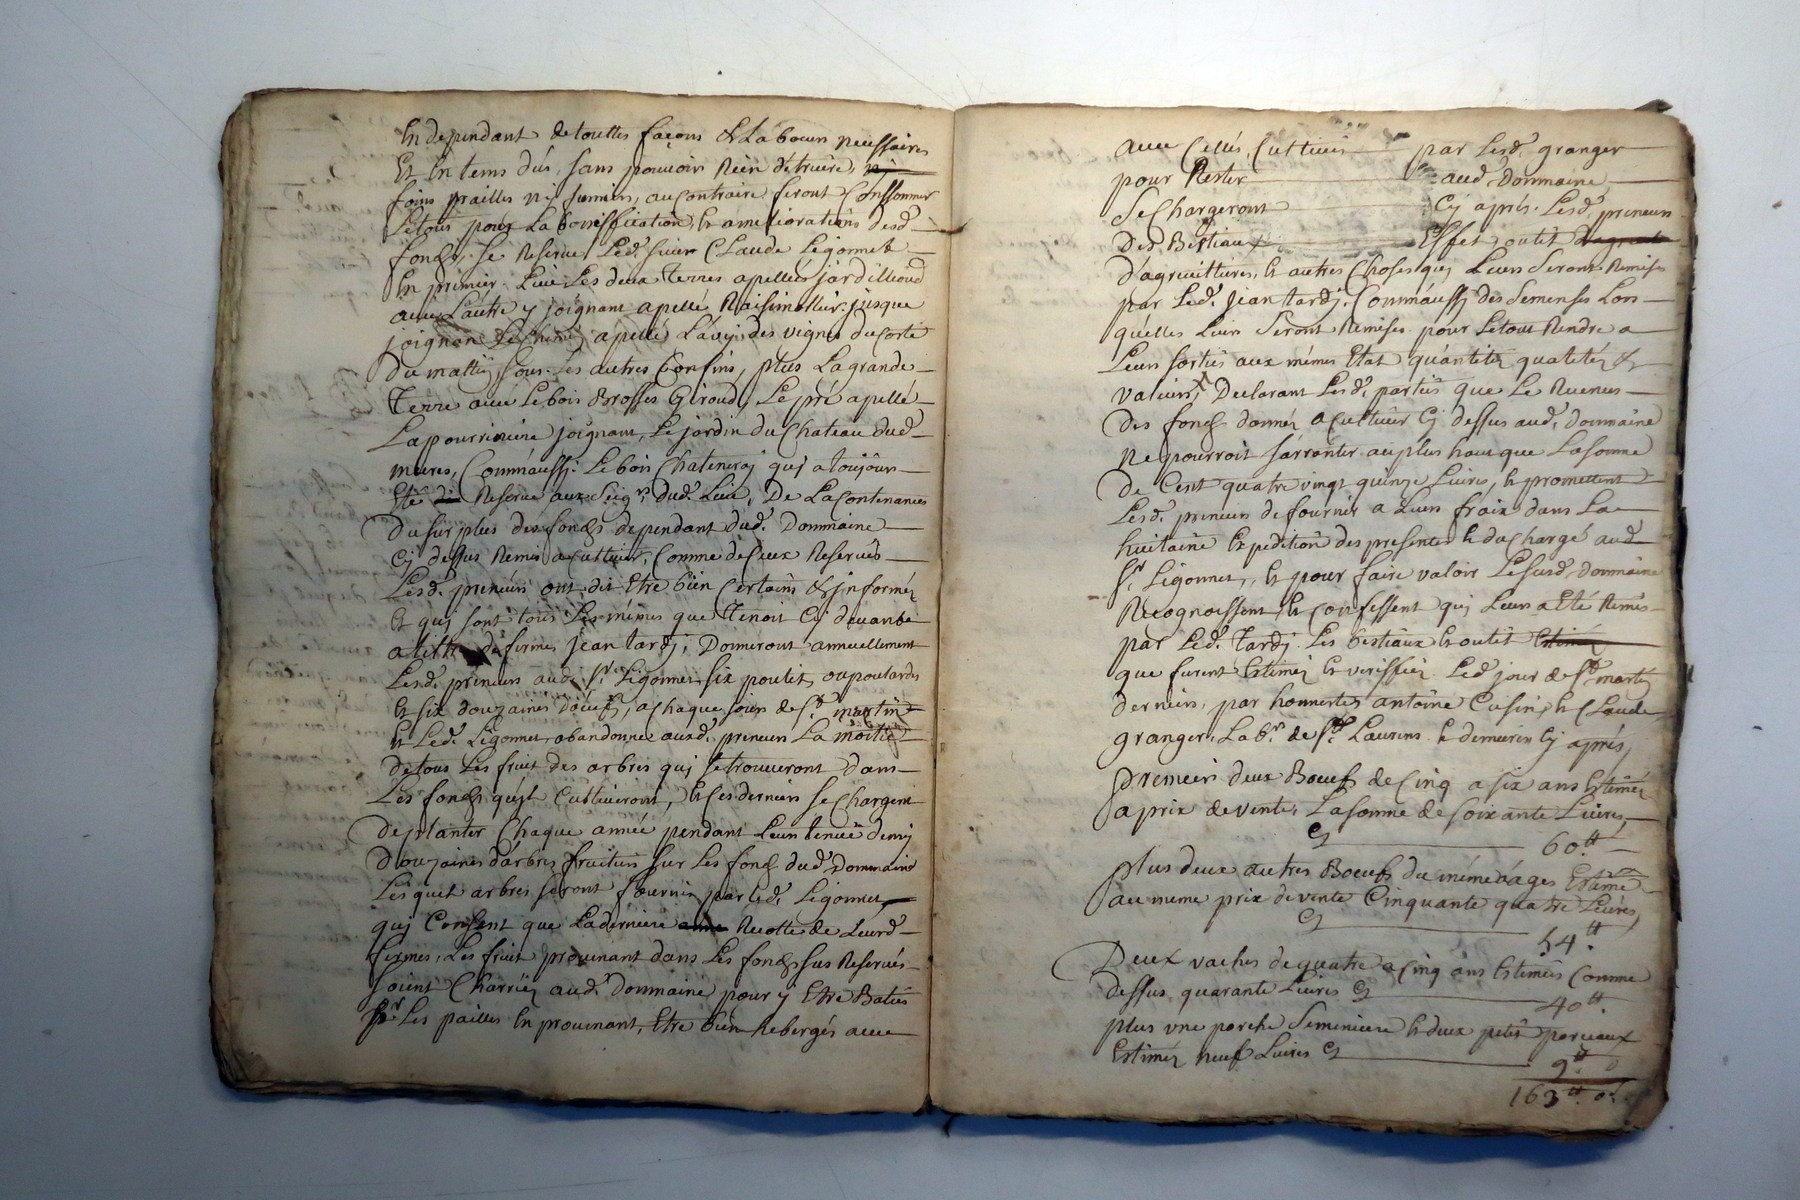 En dependant de touttes façons & Labeurs necessaires
Et En tems dûs, sans pouvoir Rien détruire, ni
foins pailles ni fumiers, au Contraire feront Conssommer
Le tout pour La bonifffication, & ameliorations desd.
fonds, se Reserve Led. sieur Claude Ligonnet
En premier Lieu Les deux terres apellées jardillioud
avec L'autre y joignant apellé Raisimollier jusque
joignant Le Chemin apellé L'avy des vignes du Coste
Du mattin sous Les autres Confins, plus La grande
Terre avec Le bois Brosses Giroud, Le pré apellé
La pourrieire joignant, Le jardin du Chateau dud.
mures, Comm'aussy Le bois Chateneray quj a toujours
Eté Reservé aux Seigrs dud. Lieu, De La Contenances
Du surplus des fonds dependant dud. Dommaine
Cy dessus Remis a Cultiver, Comme de Ceux Reservés
Lesd. preneurs ont dit Etre bien Certains & jnformés
Et quj sont tous Les mémes que Tenoit Cy devant
a titre de fermes Jean tardj, Donneront annuellement
Lesd. preneurs aud. Sr Ligonnet six poulets, ou poulardes
Et six douzaines d'oeufs, a chaque jour de St. martin
Et Led. Ligonnet abandonne auxd. preneurs La moitié
De tous Les fruit des arbres quj se trouveront dans
Les fonds qu'jl Cultiveront, & Ces derniers se Chargent
De planter Chaque année pendant Leur tenue demy
Douzaines d'arbres fruitiers sur Les fonds dud. Dommaine
Lesquel arbres seront fournis par Led. Ligonnet,
quj Consent que La derniere Recolte de Leurd.
fermes, Les fruit provenant dans Les fonds sus Reservés
soient Charriés aud. Dommaine pour y Etre Batus
pr Les pailles En provenant, Etre bien hebergés avec
avec Celles, Cultivés par Lesd. granger
pour Rester aud. Dommaine,
Se Chargeront Cy après Lesd. preneurs
Desd. Bestiaux Effet, outil
D'agricultures, & autres Choses quj Leur Seront Remises
par Led. Jean tardj, Comm'aussj des Semenses Lors
qu'elles Leur Seront Remises pour Le tout Rendre a
Leur sorties aux mémes Etat quantités qualités &
valeurs, Declarant Lesd. parties que Le Revenus
Des fonds donnés a Cultiver Cy dessus aud. dommaine
Ne pourroit s'arrenter au plus haut que La somme
De Cent quatre vingt quinze Livres, & promettent
Lesd. preneurs de fournir a Leur fraix dans La
huitaine Expedition des presentes & de Chargé aud.
Sr Ligonnet, & pour faire valoir Le susd. dommaine
Recognoissent & Confessent quj Leur a Eté Remis
par Led. tardj Les bestiaux & outil Estimés
que furent Estimés & veriffiés Led. jour de St. martin
derniers, par honnertes antoine Cusin, & Claude
granger, Labr. de St. Laurens & demeures Cy après,
Premiers deux Boeufs de Cinq a six ans Estimés
a prix de vente, La somme de soixante Livres,
Cy 60.tt
Plus deux autres Boeufs du méme áages Estimé
au meme prix de vente Cinquante quatre Livres,
Cy 54.tt
Deux vaches de quatre a Cinq ans Estimés Comme
dessus quarante Livres Cy 40.tt
plus une porche Seminiere & deux petit porceaux
Estimés neuf Livres Cy 9.tt
163.tt